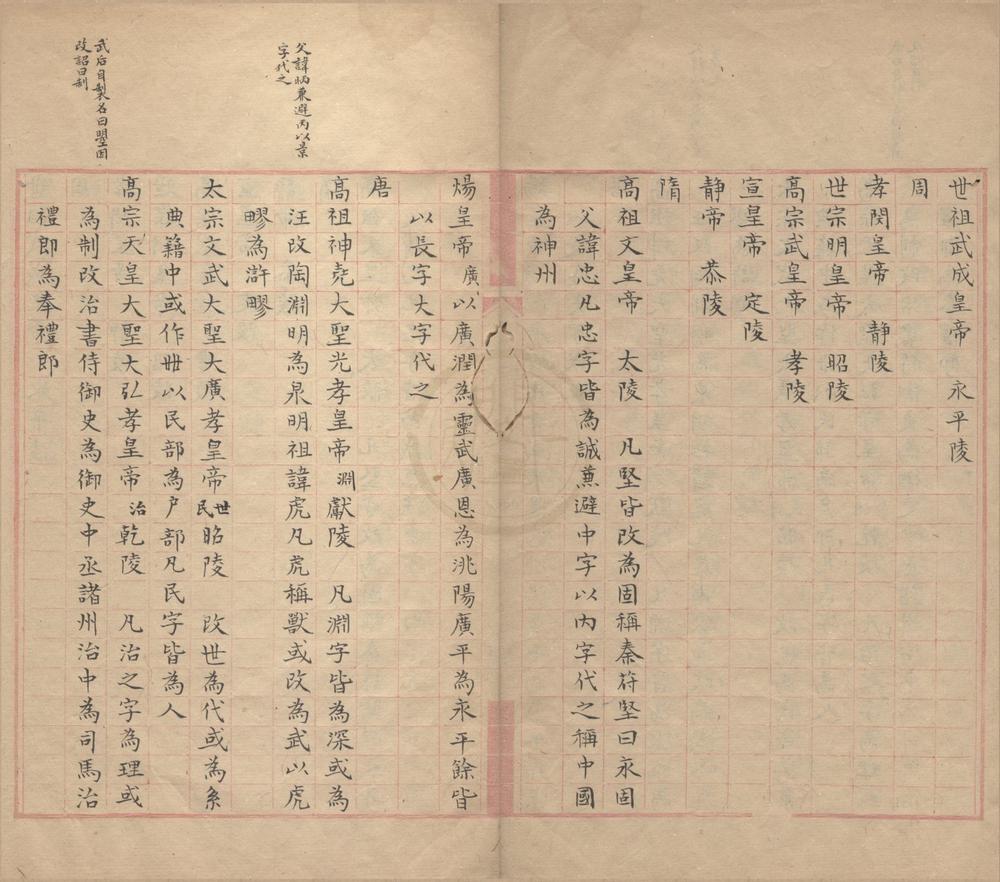 世祖武成皇帝 永平陵
周
孝閔皇帝 靜陵
世宗明皇帝 昭陵
高宗武皇帝 孝陵
宣皇帝 定陵
靜帝 恭陵
隋
高祖文皇帝 太陵 凡堅皆改為固稱秦苻堅曰永固
父諱忠凡忠字皆為誠蕙避中字以內字代之稱中國
為神州
煬皇帝廣以廣潤為靈武廣恩為洮陽廣平為永平餘皆
以長字大字代之
唐
高祖神堯大聖光孝皇帝淵獻陵 凡淵字皆為深或為
汪改陶淵明為泉明祖諱虎凡虎稱獸或改為武以虎
𧇾為滸𧇾
父諱昞兼避丙以景
字代之
太宗文武大聖大廣孝皇帝世民昭陵 改世為代或為系
典籍中或作丗以民部為户部凡民字皆為人
高宗天皇大聖大弘孝皇帝治乾陵 凡治之字為理或
為制改治書侍御史為御史中丞諸州治中為司馬治
禮郎為奉禮郎
武后自製名曰曌因
改詔曰制